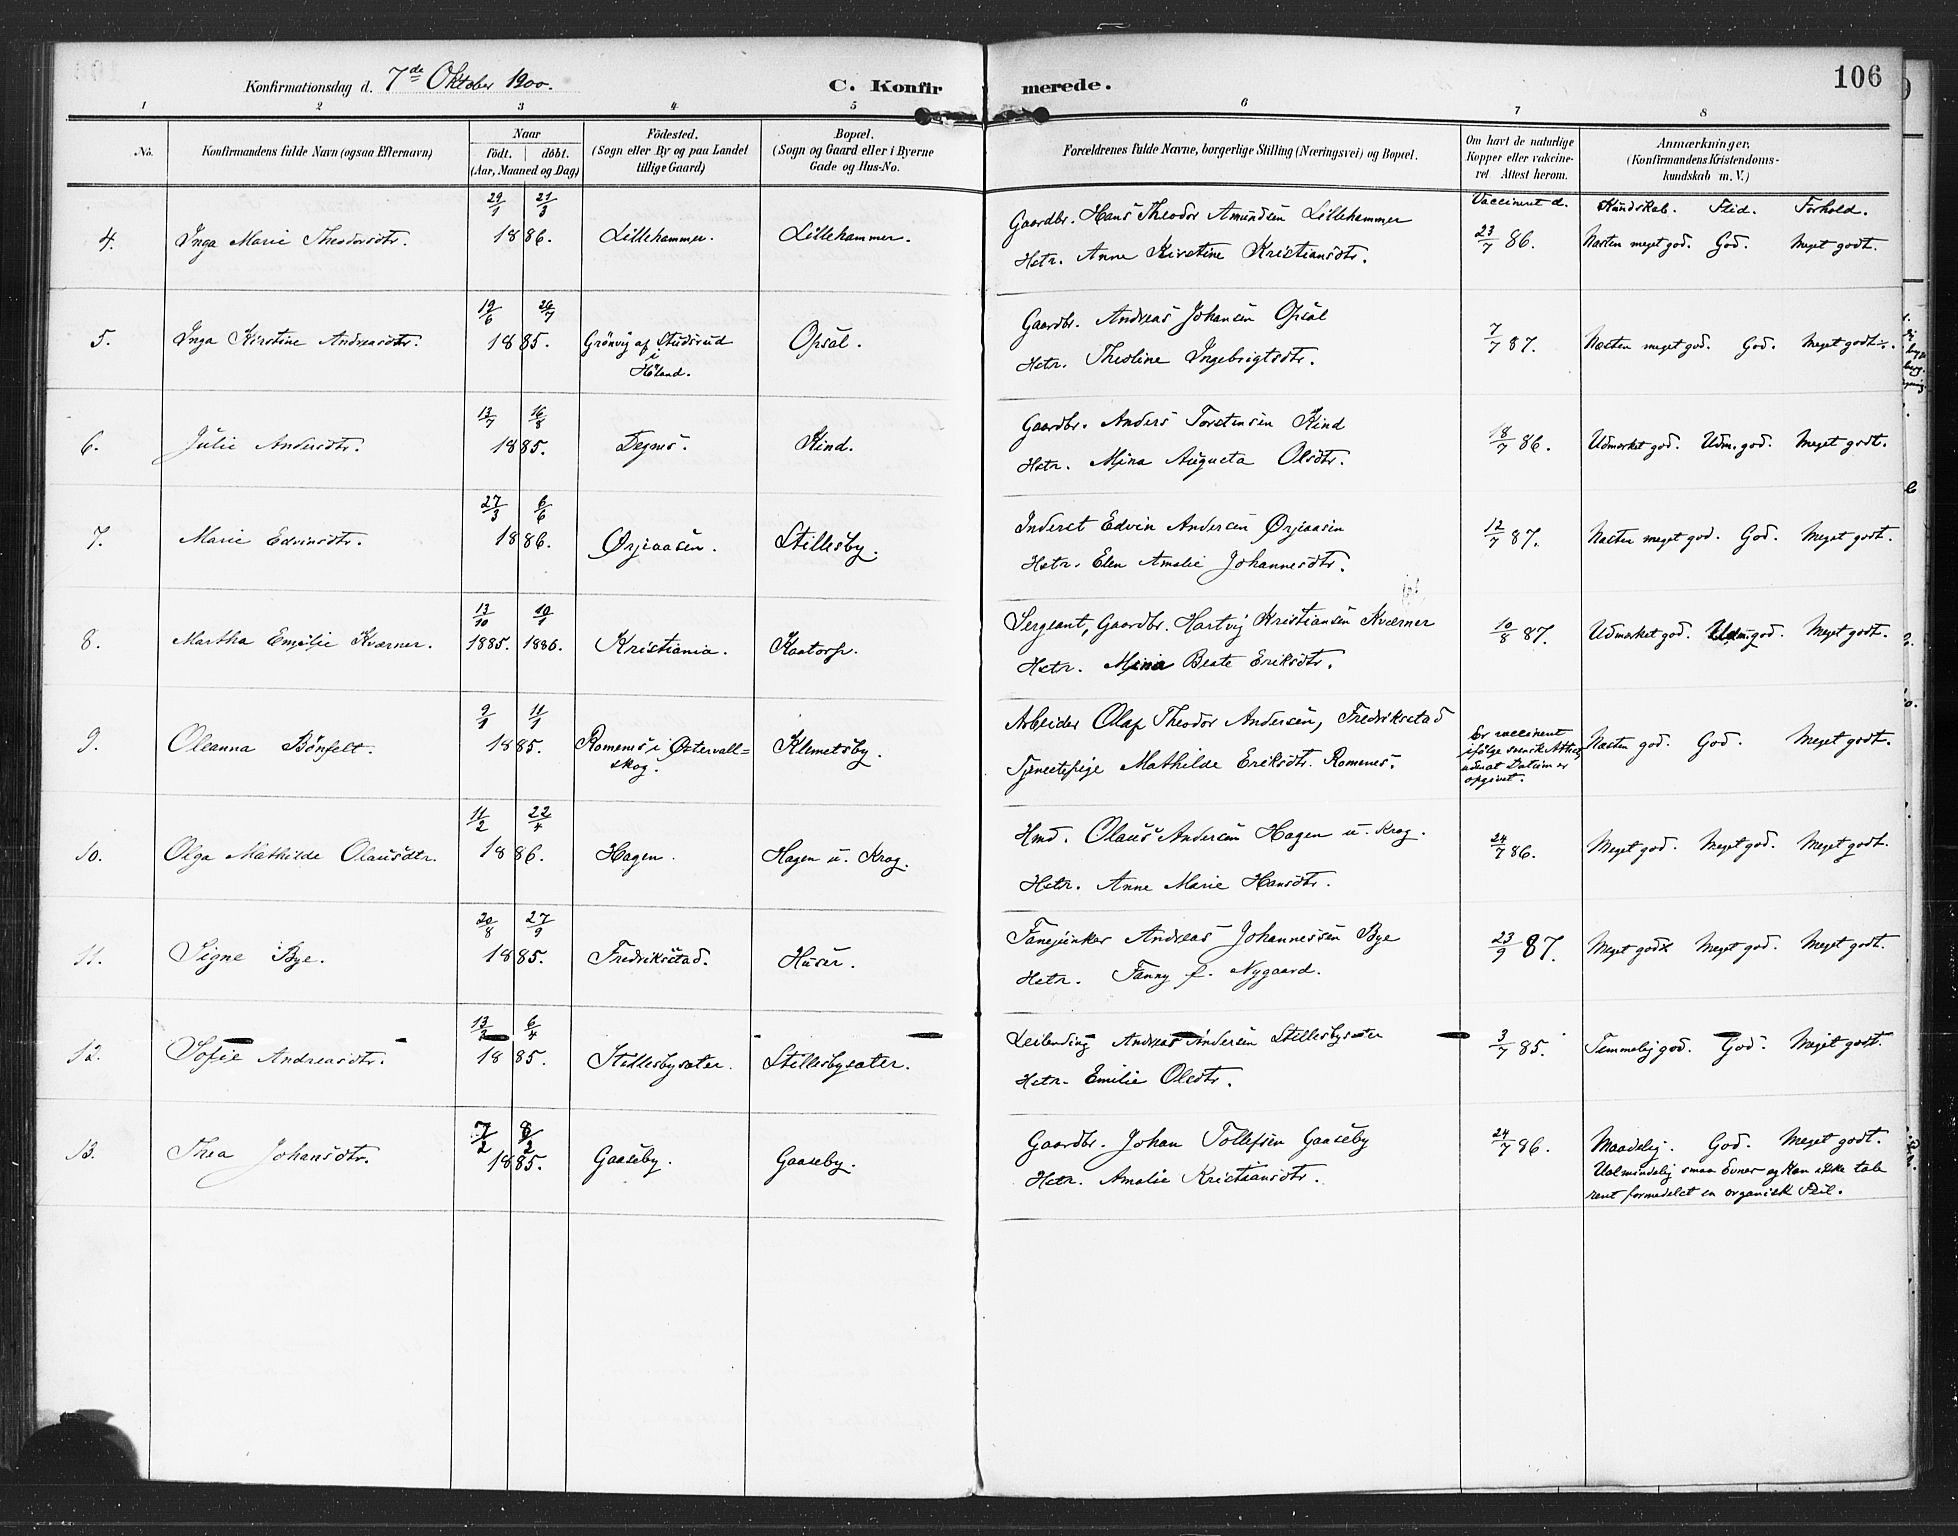 106
Konfirmationsdag d. 7de Oktober 1900.
C. Konfirmerede.
1 2 3 4 5 6 7 8
No.
Konfirmandens fulde Navn (ogsaa Efternavn)
Naar
födt. | döbt.
(Aar, Maaned og Dag)
Födested.
(Sogn eller By og paa Landet
tillige Gaard)
Bopæl.
(Sogn og Gaard eller i Byerne
Gade og Hus-No.
Forældrenes fulde Navne, borgerlige Stilling (Næringsvei) og Bopæl.
Om havt de naturlige
Kopper eller vakcine-
ret Attest herom.
Anmærkninger.
(Konfirmandens Kristendoms-
kundskab m. V.)
Vaccineret d.
Kundskab. Flid. Forhold.
4. Inga Marie Theodorsdtr. 29/1 21/3 1886. Lillehammer. Lillehammer.
Gaardbr. Hans Theodor Amundsen Lillehammer
Hstr. Anne Kirstine Kristiansdtr.
23/7 86. Næsten meget god. God. Meget godt.
5. Inga Kirstine Andreasdtr. 19/6 26/7 1885. Grönvig af Studsrud
i
Höland.
Opsal.
Gaardbr. Andreas Johansen Opsal
Hstr. Theoline Ingebrigtsdtr.
7/7 87. Næsten meget god. God. Meget godt.
6. Julie Andersdtr. 13/7 16/8 1885. Degnes. Kind.
Gaardbr. Anders Torstensen Kind
Hstr. Mina Augusta Olsdtr.
18/7 86. Udmærket god. Udm. god. Meget godt.
7. Marie Edvinsdtr. 27/3 6/6 1886. Ørjiaasen. Stillesby.
Inderst Edvin Andersen Ørjiaasen
Hstr. Elen Amalie Johannesdtr.
12/7 87. Næsten meget god. God. Meget godt.
8. Martha Emilie Kværner. 13/10 1885. 10/1 1886. Kristiania. Kaatorp.
Sergeant, Gaardbr. Hartvig Kristiansen Kværner
Hstr. Mina Beate Eriksdtr.
10/8 87. Udmærket god. Udm god. Meget godt.
9. Oleanna Bönfelt. 9/1 11/1 1885. Romenes i Østervall-
skog.
Klemetsby.
Arbeider Olaf Theodor Andersen, Fredrikstad
Tjenestepige Mathilde Eriksdtr. Romenes.
Er vaccineret
ifølge svensk Attest,
uden at Datum er
opgivet.
Næsten god. God. Meget godt.
10. Olga Mathilde Olausdtr. 11/2 22/4 1886. Hagen. Hagen u. Krog.
Hmd. Olaus Andersen Hagen u. Krog.
Hstr. Anne Marie Hansdtr.
24/7 86. Meget god. Meget god. Meget godt.
11. Signe Bye. 20/8 27/9 1885. Fredrikstad. Huser.
Fanejunker Andreas Johannessen Bye
Hstr. Fanny f. Nygaard.
23/9 87. Meget god Meget god. Meget godt.
12. Sofie Andreasdtr. 13/3 6/4 1885. Stillesbysæter. Stillesbysæter.
Leilending Andreas Andersen Stillesbysæter
Hstr. Emilie Olsdtr.
3/7 85. Temmelig god. God. Meget godt.
13. Thea Johansdtr. 7/2 8/2 1885. Gaaseby. Gaaseby.
Gaardbr. Johan Tollefsen Gaaseby
Hstr. Amalie Kristiansdtr.
24/7 86. Maadelig. God. Meget godt.
Ualmindelig smaa Evner og kan ikke tale
rent formedelst en organisk Feil.